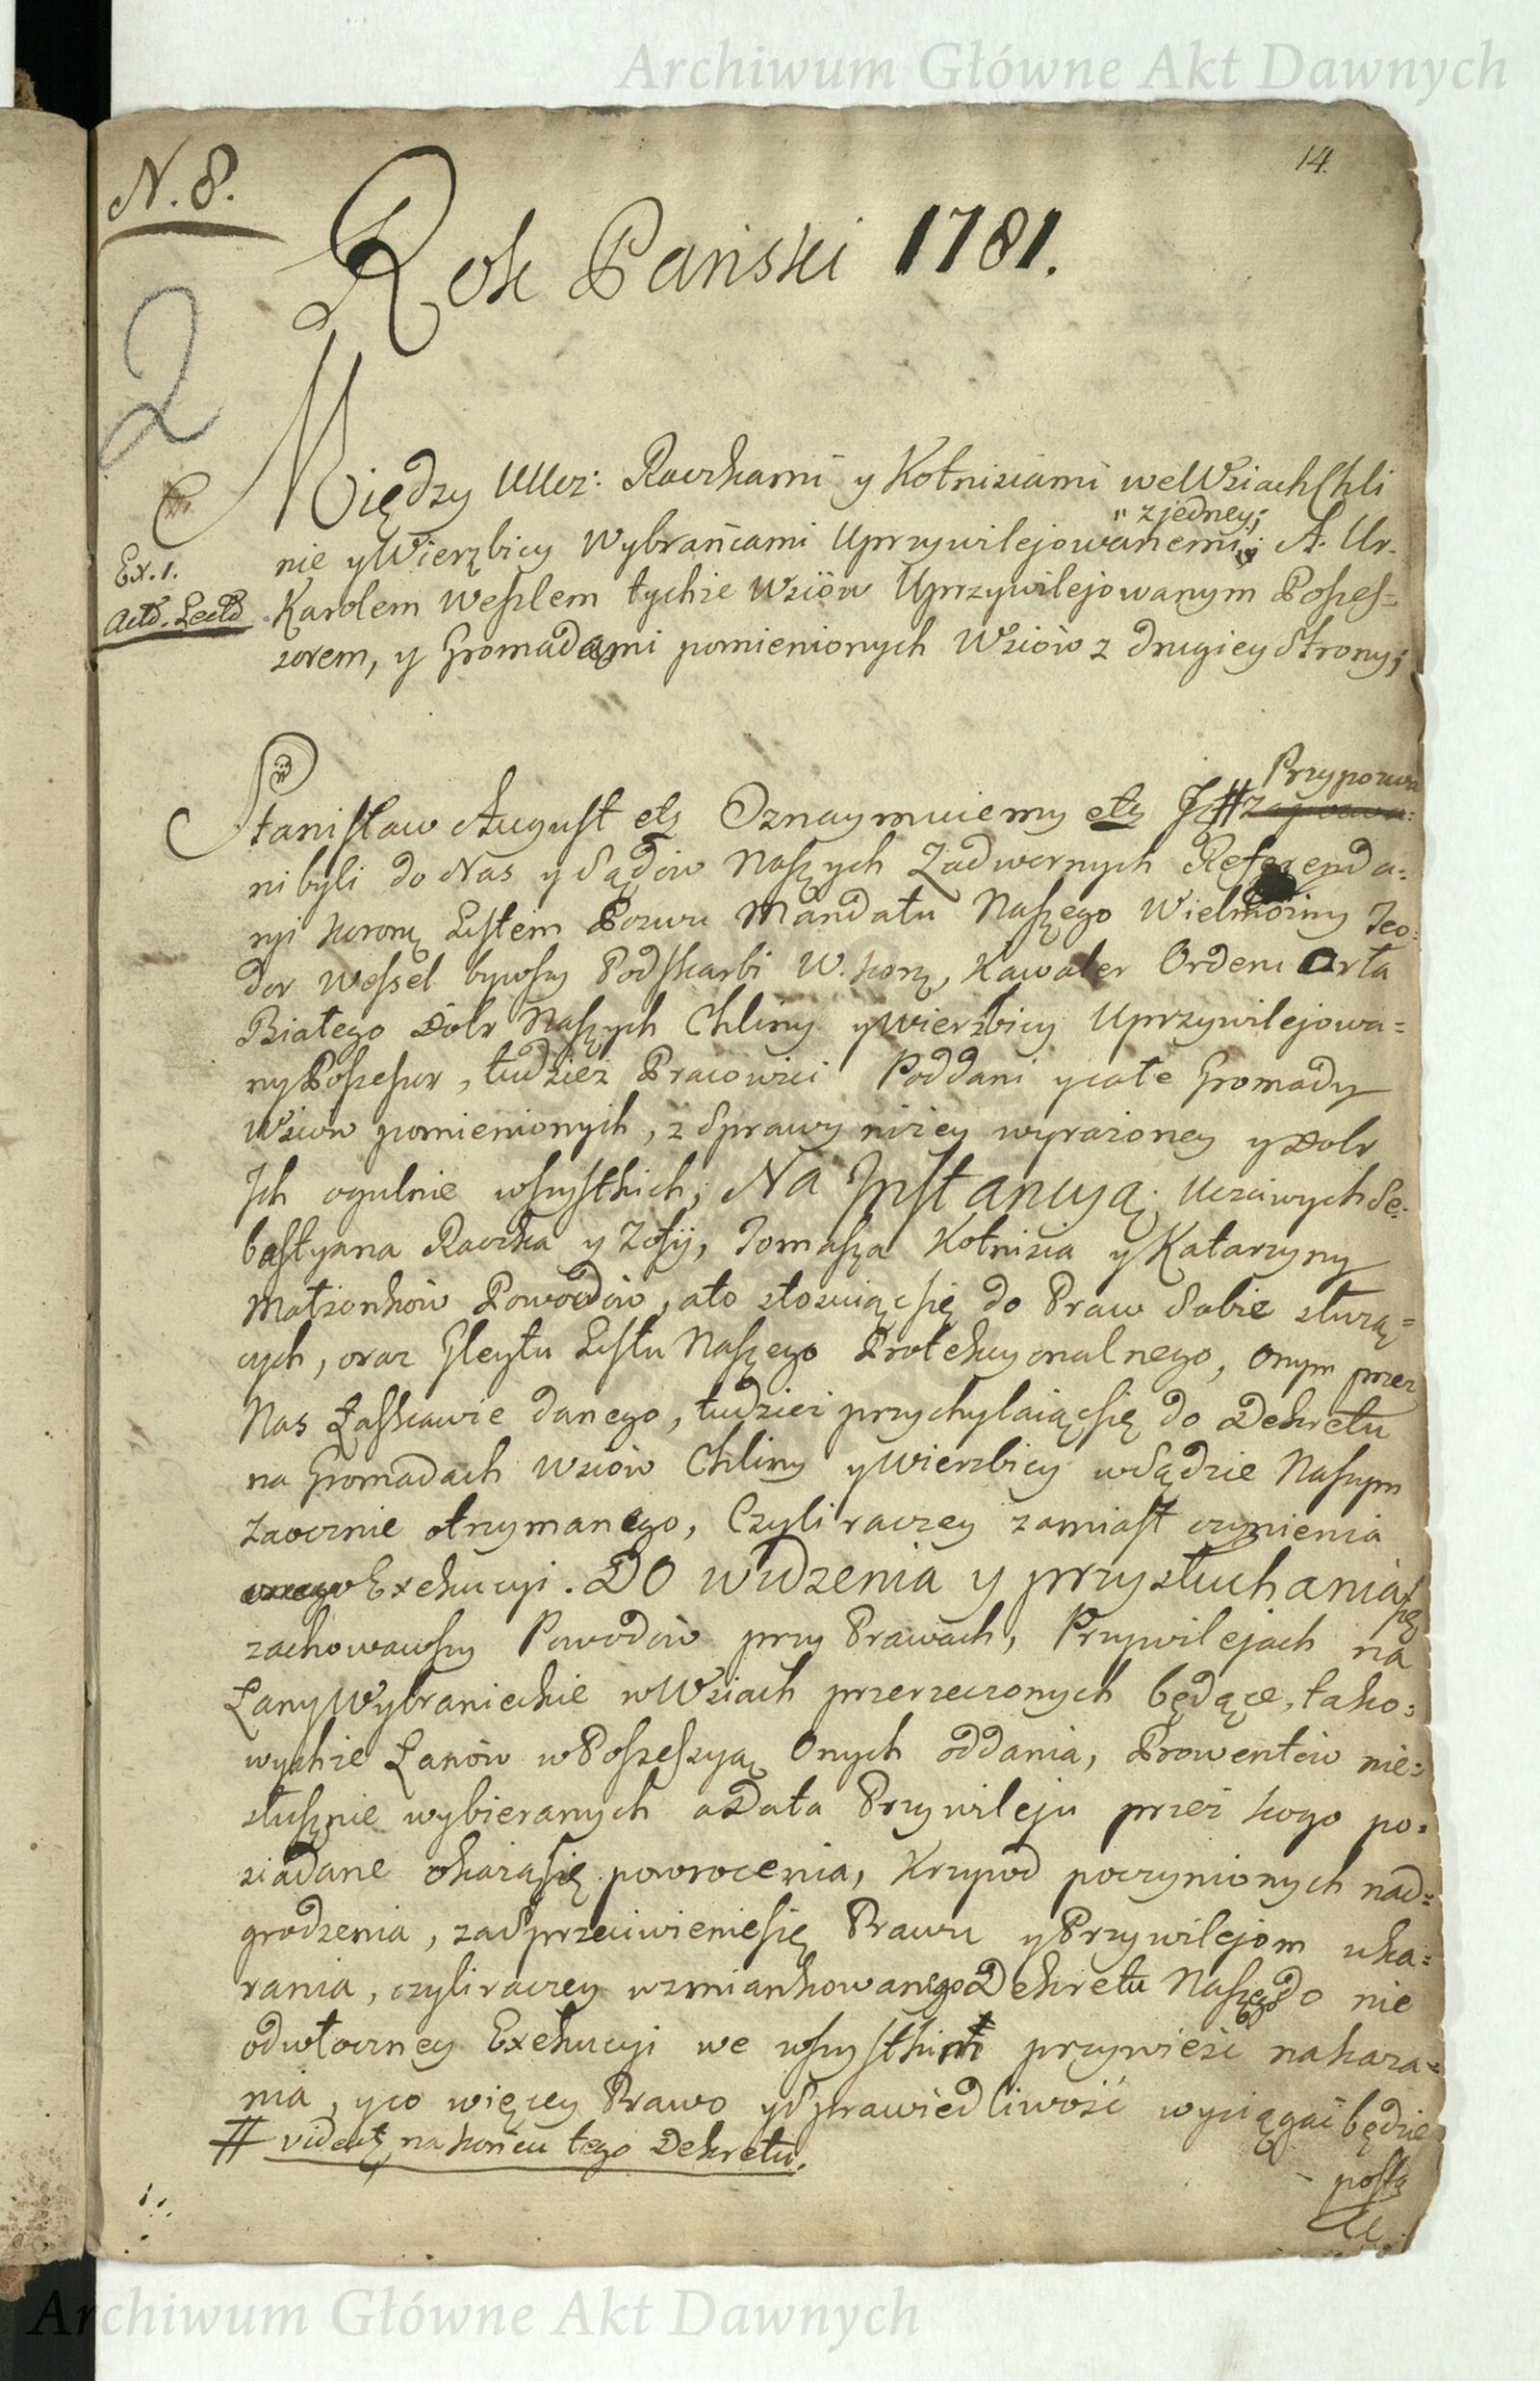 Archiwum Główne Akt Dawnych
14.
N. 8.
Rok Pański 1781.
2
Między Uucz: Raczkami y Kołnisiami we Wsiach Chli
"z jedney;
nie y Wierzbicy Wybrańcami Uprzywilejowanemi; A. Ur.
Ex. 1.
Karolem Wesslem tychże Wsiów Uprzywilejowanym Posses=
Actd. Lectd
sorem, y Gromadami pomienionych Wsiów z drugiey Strony;
Przypozwa
Stanisław August etz Oznaymuiemy etz Iż # zapozwa:
ni byli do Nas y Sądów Naszych Zadwornych Referenda=
ryi koronę Listem Pozwu Mandatu Naszego Wielmożny Teo=
dor Wessel bywszy Podskarbi W. korę, Kawaler Orderu Orła
Białego Dóbr Naszych Chliny y Wierzbicy Uprzywilejowa=
ny Possessor, tudzież Pracowici Poddani y całe Gromady
Wsiów pomienionych, z Sprawy niżey wyrażoney y Dobr
Ich ogulnie wszystkich; Na Instancyą. Uczciwych Se=
bastyana Raczka y Zofij, Tomasza Kołnisia y Katarzyny
Małżonków Powodów, a to stosuiąc się do Praw Sobie służą=
cych, oraz Gleytu Listu Naszego Protekcyonalnego, onym przez
Nas Łaskawie danego, tudzież przychylaiąc się do Dekretu
na Gromadach Wsiów Chliny y Wierzbicy w Sądzie Naszym
Zaocznie otrzymanego, Czyli raczey zamiast czynienia
onego Exekucyi. Do widzenia y przysłuchania się
zachowawszy Powodów przy Prawach, Przywilejach na
Łany Wybranieckie w Wsiach przerzeczonych będące, tako=
wychże Łanów w Possessyą Onych oddania, Prowentów nie=
słusznie wybieranych a Data Przywileju przez kogo po=
siadane okażą się powrocenia, Krzywd poczynionych nad=
grodzenia, za Sprzeciwienie się Prawu y Przywilejom uka=
rania, czyli raczey wzmiankowanego Dekretu Naszego do nie
odwłoczney Exekucyi we wszystkim przywieść nakaza=
nia, y co więcey Prawo y Sprawiedliwość wyciągać będzie
# videatz na końcu tego Dekretu.
- posta
Archiwum Główne Akt Dawnych